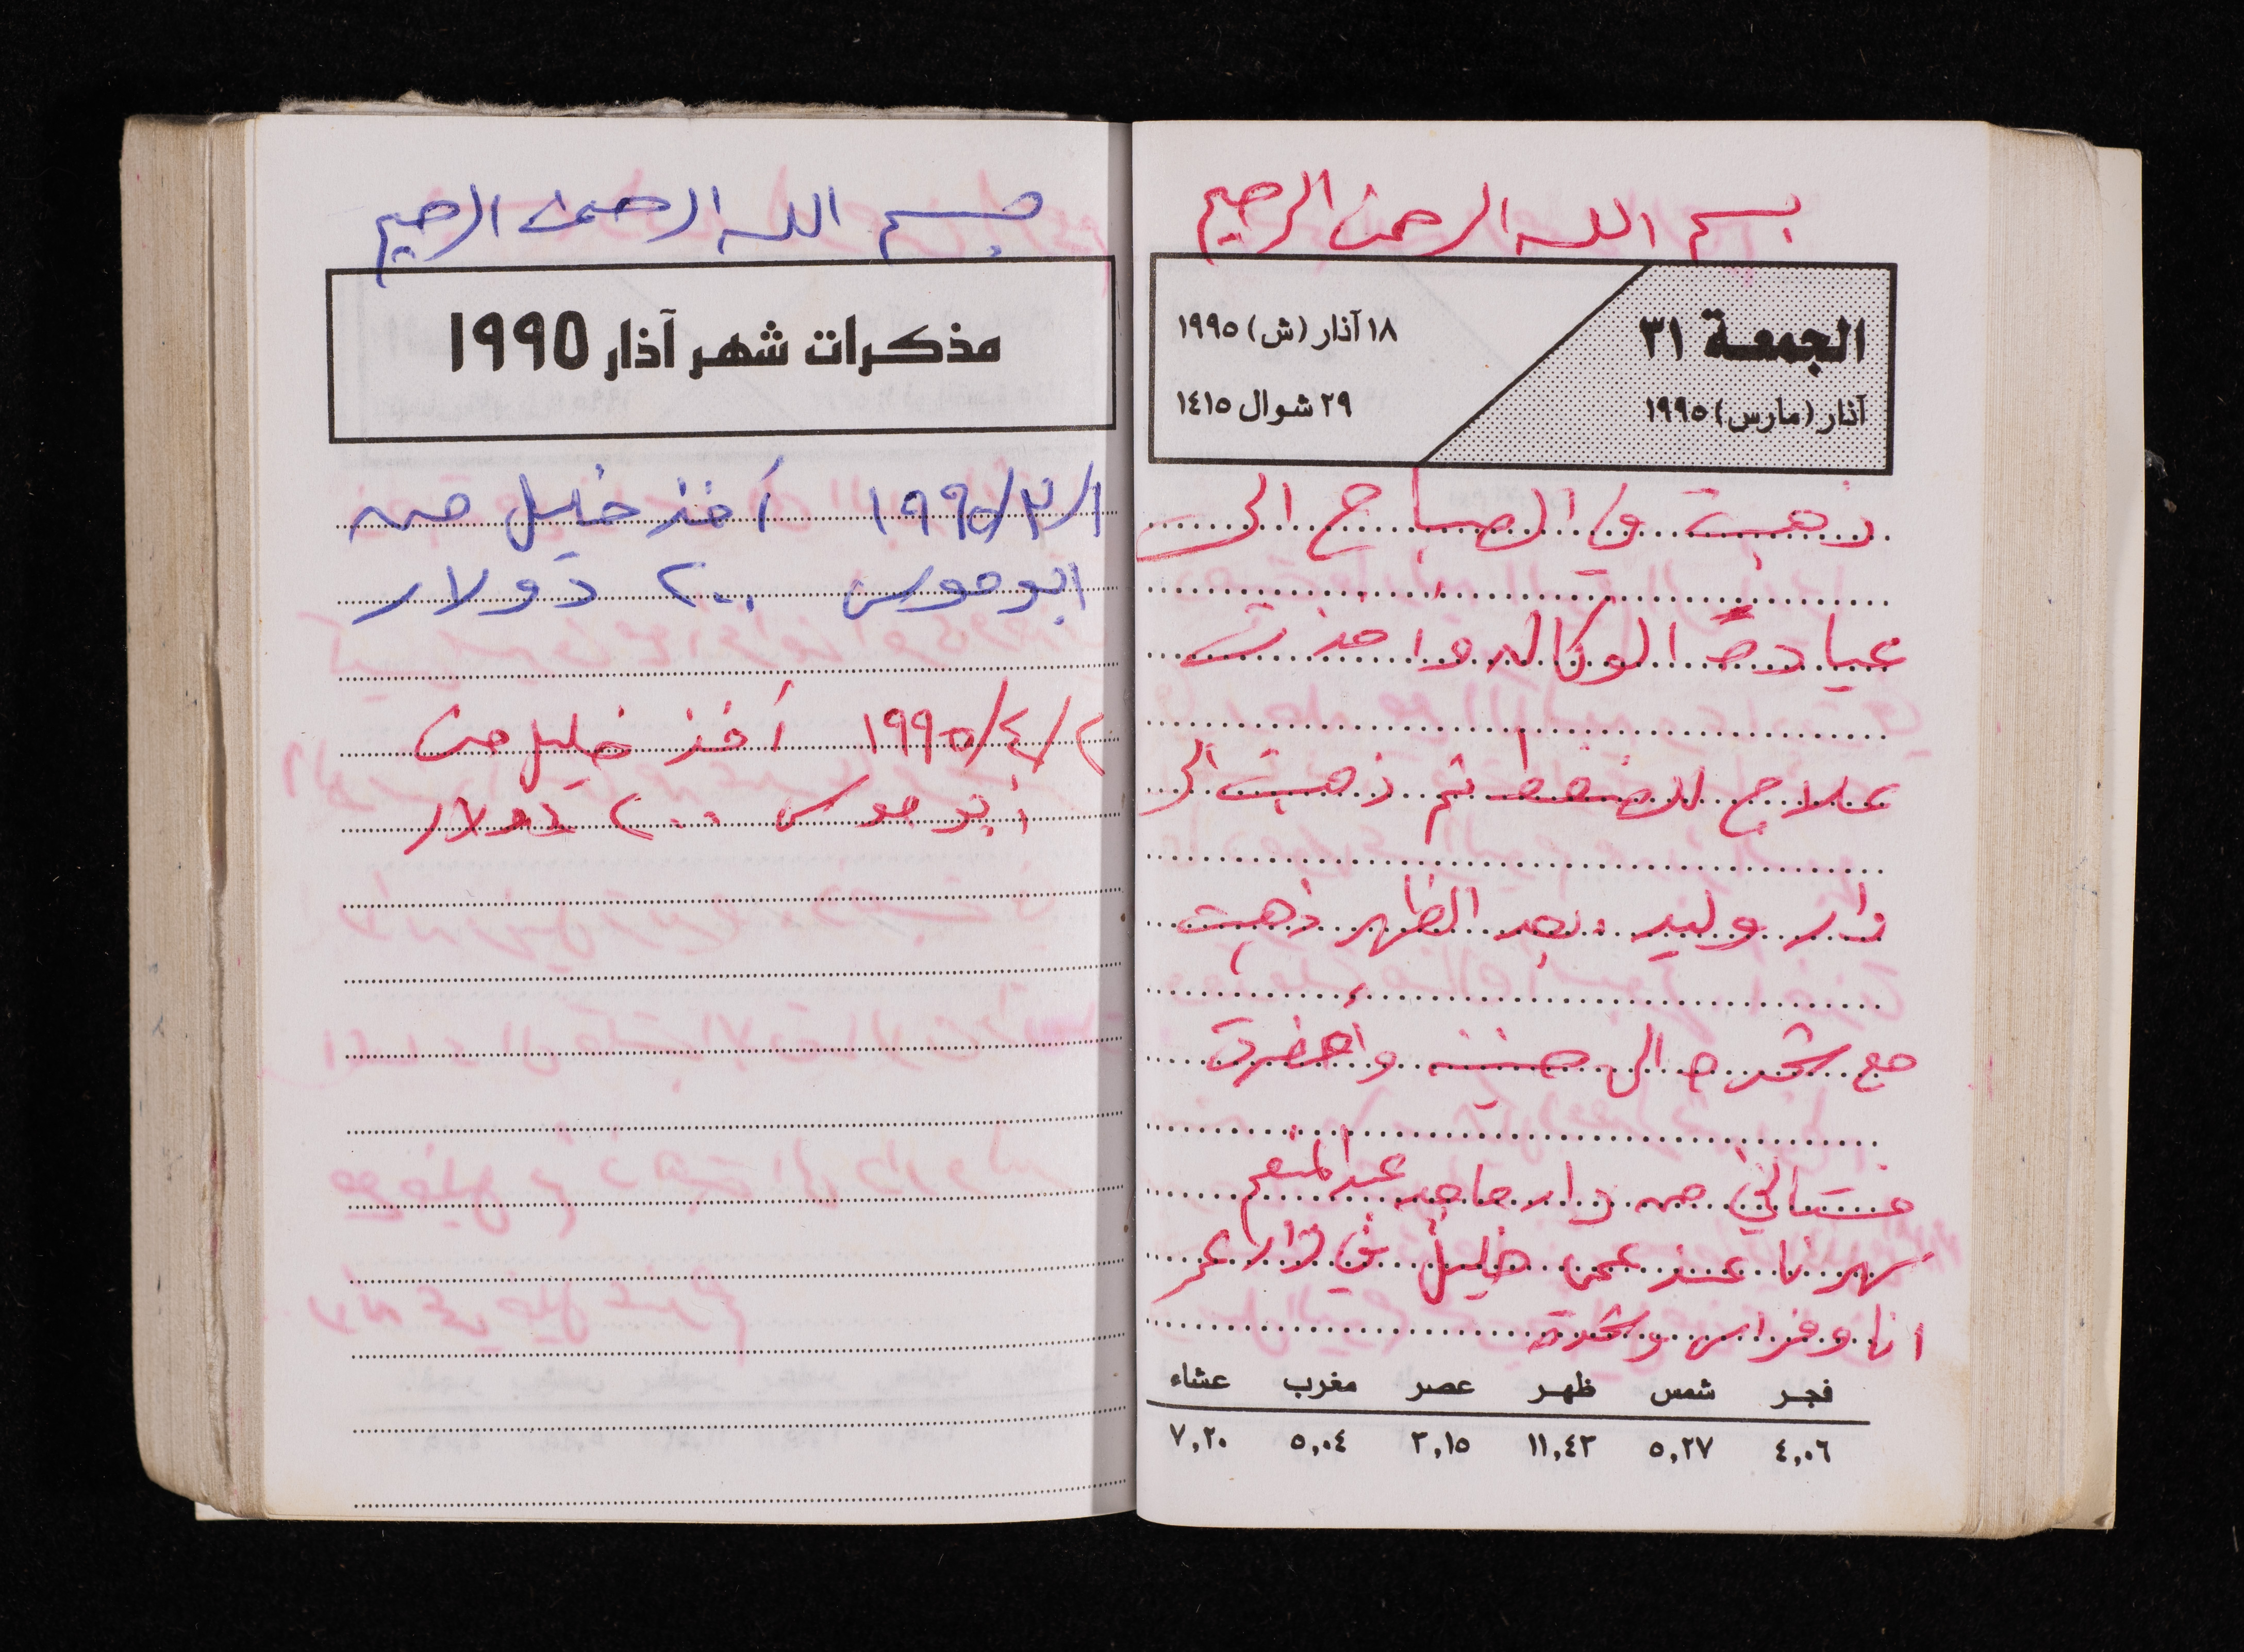 بسم الله الرحمن الرحيم
الجمعة ٣١
آذار (مارس) ١٩٩٥
١٨ آذار (ش) ١٩٩٥
٢٩ شوال ١٤١٥
ذهبت في الصباح الى
عيادة الوكاله واخذت
علاج للضغط ثم ذهبت الى
دار وليد. بعد الظهر ذهبت
مع شحده الى واحضرت
من دار ماجد عبد المنعم
سهرنا عند عمي خليل في دار عمر
انا وفراس وشحدة
فجر شمس ظهر عصر مغرب عشاء
٤,٠٦ ٥,٢٧ ١١,٤٣ ٣,١٥ ٥,٠٤ ٧,٢٠
بسم الله الرحمن الرحيم
مذكرات شهر آذار ١٩٩٥
١٩٩٥/٣/١ أخذ خليل من
ابو موسى ٢٠٠ دولار
١٩٩٥/٤/٢ أخذ خليل من
أبو موسى ٢٠٠ دولار